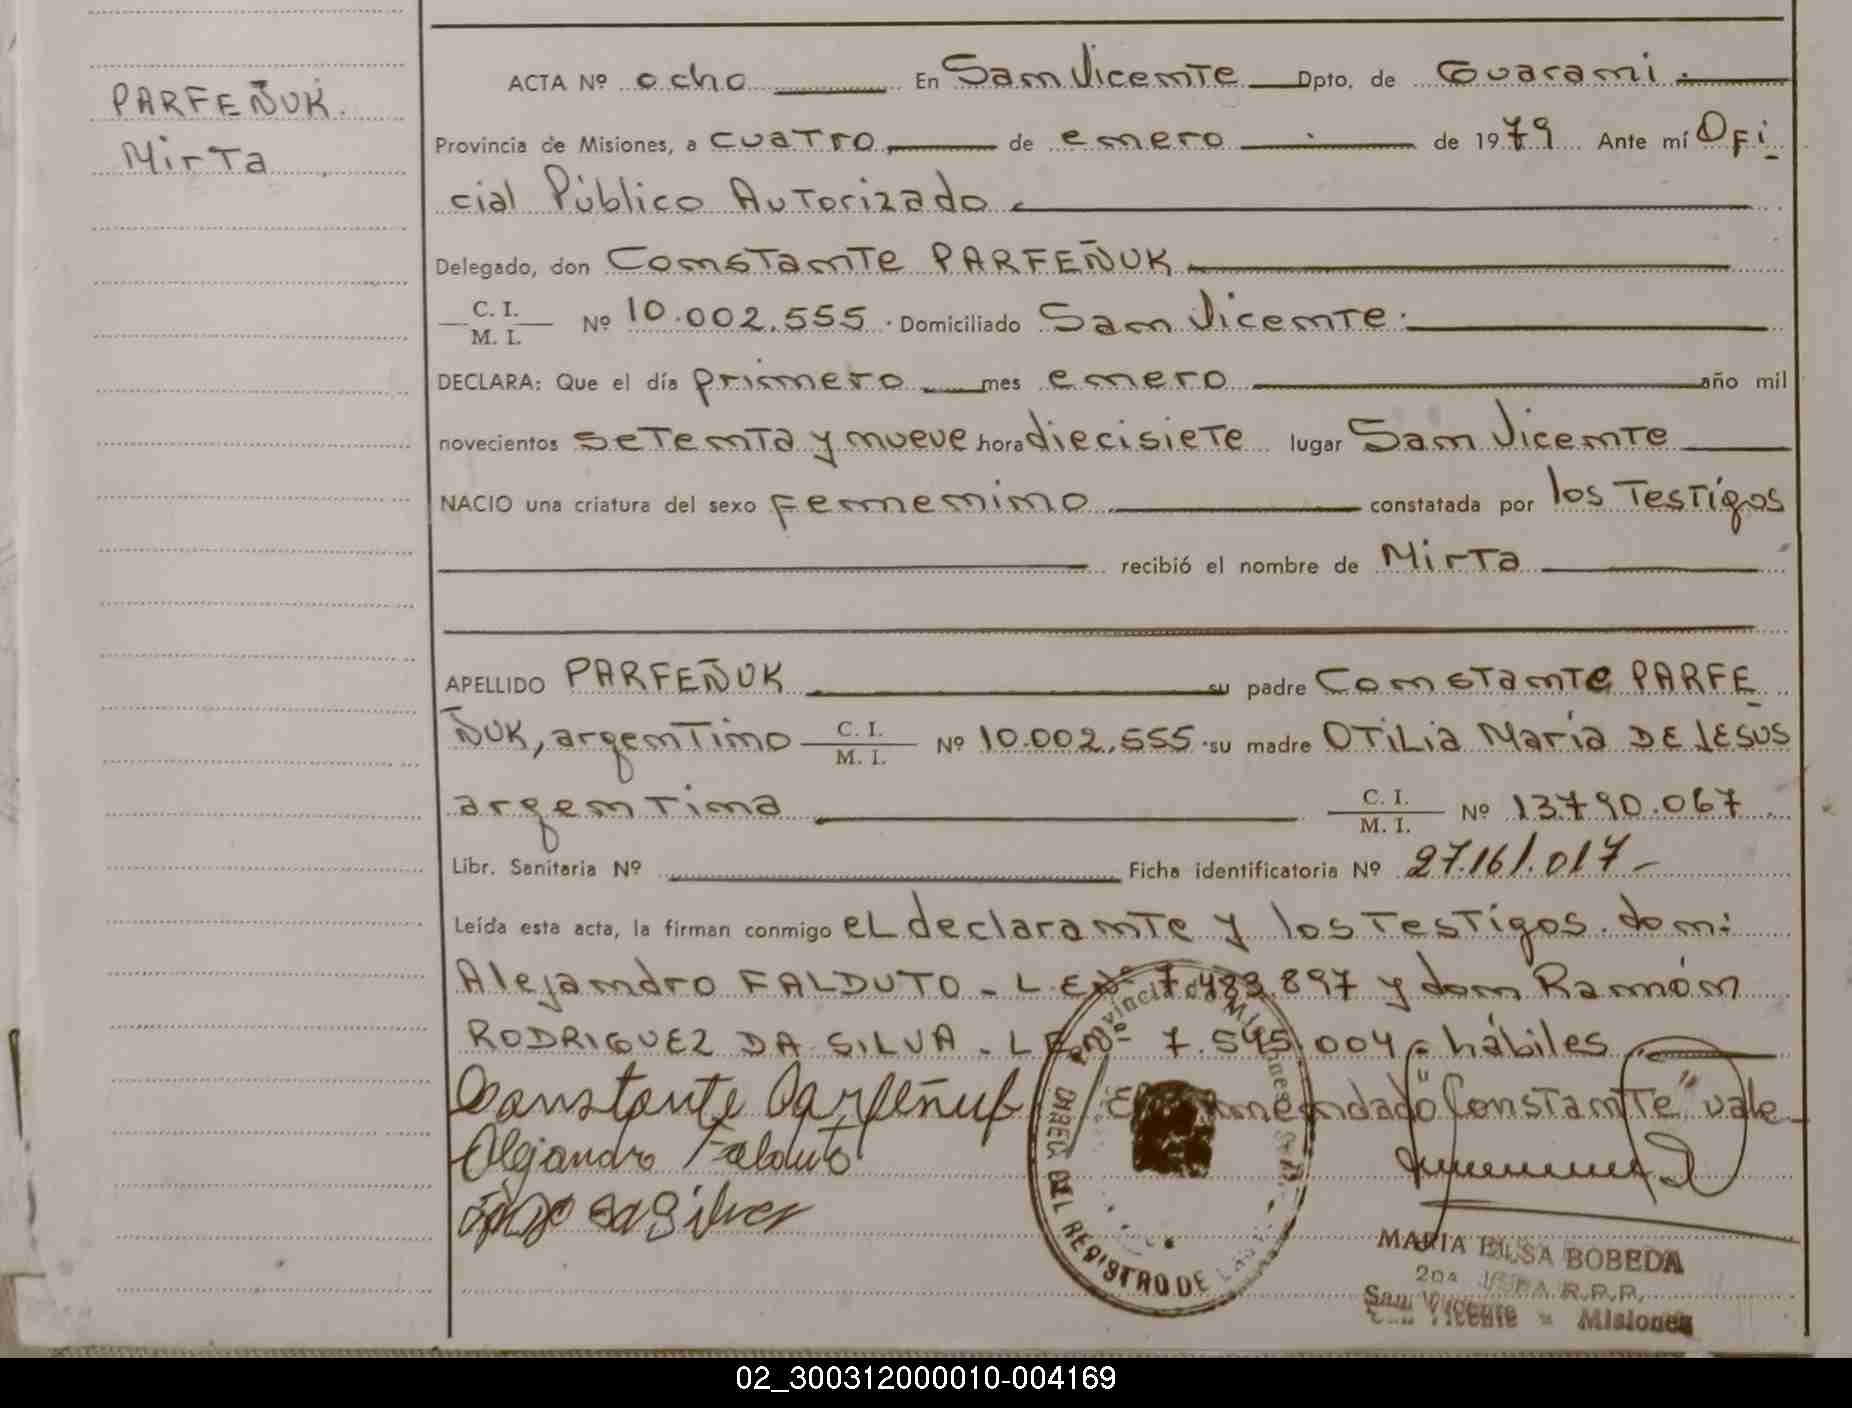 PARFEÑUK.
Mirta
ACTA Nº ocho En San Vicente Dpto. de Guarani.
Provincia de Misiones, a cuatro de enero de 1979 Ante mí Ofi
cial Público Autorizado.
Delegado, don Constante PARFEÑUK
C. I.
M. I.
Nº 10.002.555. Domiciliado San Vicente.
DECLARA: Que el día primero mes enero año mil
novecientos setenta y nueve hora diecisiete lugar San Vicente
NACIO una criatura del sexo femenino constatada por los Testigos
recibió el nombre de Mirta
APELLIDO PARFEÑUK su padre Constante PARFE
ÑUK, argentino C. I. M. I. Nº 10.002.555. su madre OTiLia María DE JESÚS
argentina C. I. M. I. Nº 13.790.067
Libr. Sanitaria Nº Ficha identificatoria Nº 27.161.017-
Leída esta acta, la firman conmigo eL declarante y los Testigos. don:
Alejandro FALDUTO - L.E.Nº 7.483.897 y don Ramón
RODRIGUEZ DA SILVA - L.E.Nº 7.545.004 - hábiles
Constante Parfeñuk Enmendado "Constante" vale-
Alejandro Falduto
da Silva
Provincia de Misiones
DIREC. DEL REGISTRO DE LAS
MARIA ELSA BOBEDA
2da R.P.P.
San Vicente - Misiones
02_300312000010-004169